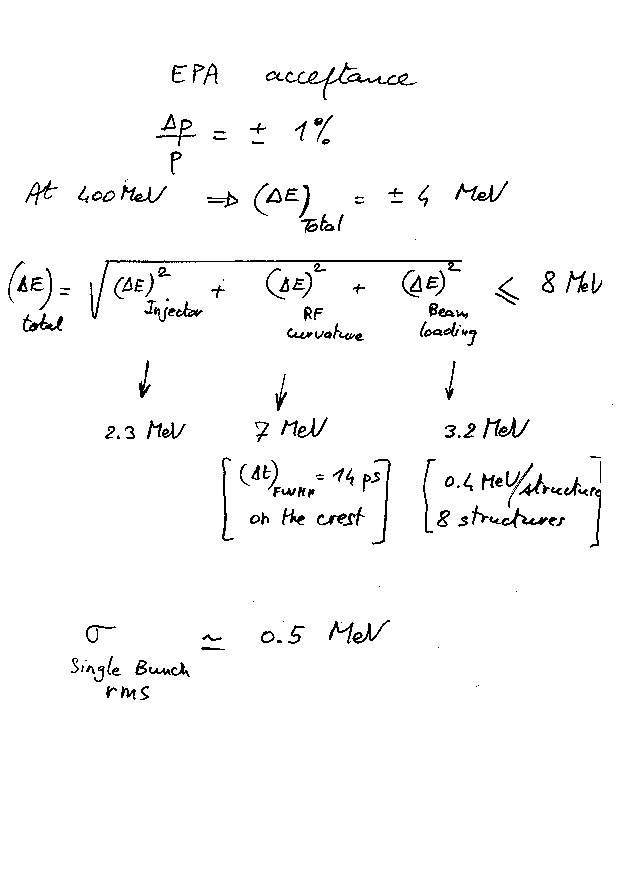 EPA acceptance
Δp/p = ± 1%
At 400 MeV ⇒ (ΔE)Total = ± 4 MeV
(ΔE)total = √((ΔE)²Injector + (ΔE)²RF curvature + (ΔE)²Beam loading) ≤ 8 MeV
↓ ↓ ↓
2.3 MeV 7 MeV 3.2 MeV
[(Δt)FWHM = 14 ps [0.4 MeV/structure
on the crest] 8 structures]
σ Single Bunch rms ≃ 0.5 MeV